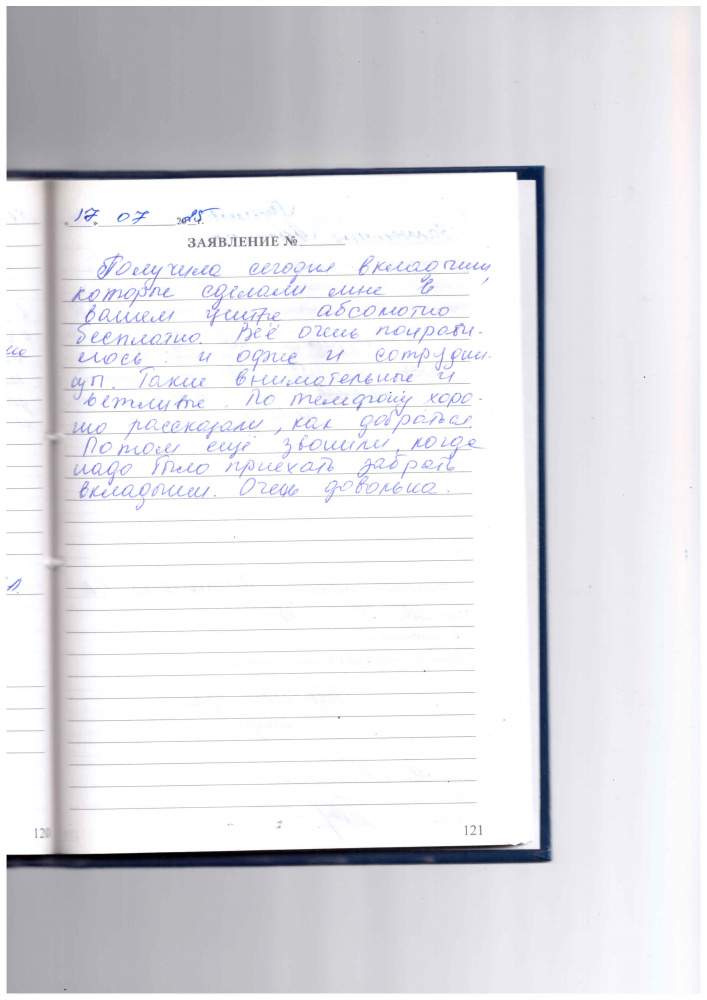 17. 07 2015
ЗАЯВЛЕНИЕ №
Получила сегодня вкладыши,
которые сделали мне в
вашем центре абсолютно
бесплатно. Всё очень понрави-
лось: и офис и сотрудни-
цы. Такие внимательные и
вежливые. По телефону хоро-
шо рассказали, как добраться.
Потом ещё звонили, когда
надо было приехать забрать
вкладыши. Очень довольна.
120
121